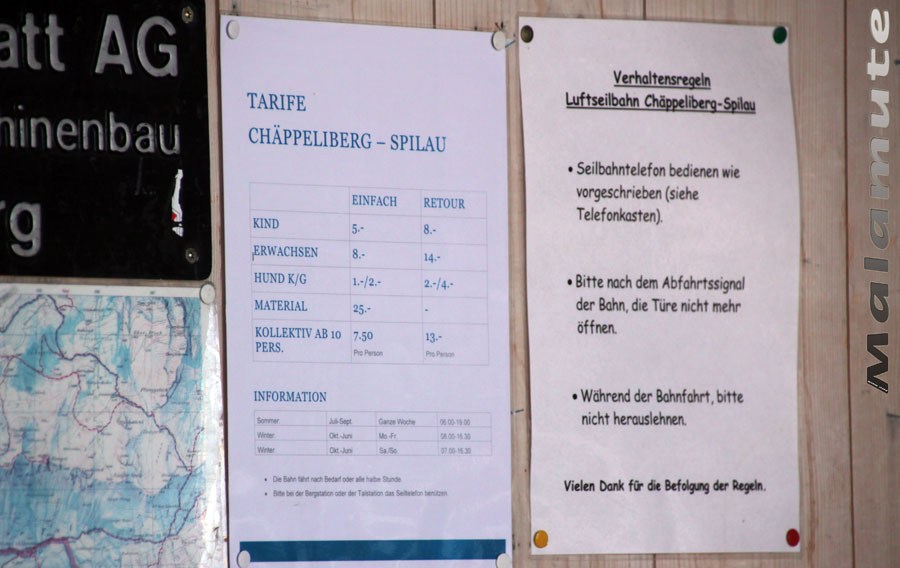 att AG
hinenbau
rg
TARIFE
CHÄPPELIBERG – SPILAU
EINFACH RETOUR
KIND 5.- 8.-
ERWACHSEN 8.- 14.-
HUND K/G 1.-/2.- 2.-/4.-
MATERIAL 25.- -
KOLLEKTIV AB 10 7.50 13.-
PERS. Pro Person Pro Person
INFORMATION
Sommer: Juli-Sept. Ganze Woche
Winter: Okt.-Juni Mo.-Fr.
Winter: Okt.-Juni Sa./So.
• Die Bahn fährt nach Bedarf oder alle halbe Stunde.
• Bitte bei der Bergstation oder der Talstation das Seiltelefon benützen.
Verhaltensregeln
Luftseilbahn Chäppeliberg-Spilau
• Seilbahntelefon bedienen wie
vorgeschrieben (siehe
Telefonkasten).
• Bitte nach dem Abfahrtssignal
der Bahn, die Türe nicht mehr
öffnen.
• Während der Bahnfahrt, bitte
nicht herauslehnen.
Vielen Dank für die Befolgung der Regeln.
Malamute